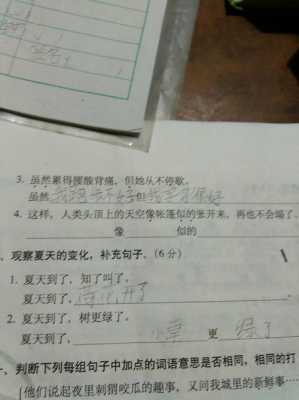 3. 虽然累得腰酸背痛，但她从不停歇。
虽然 但
4. 这样，人类头顶上的天空像帐篷似的张开来，再也不会塌了。
像 似的
、观察夏天的变化，补充句子。(6分)
1. 夏天到了，知了叫了。
夏天到了，荷花开了
2. 夏天到了，树更绿了。
夏天到了， 小草 更 绿了
、判断下列每组句子中加点的词语意思是否相同，相同的打
他们说起夜里刺猬咬瓜的趣事，又问我城里的新鲜事